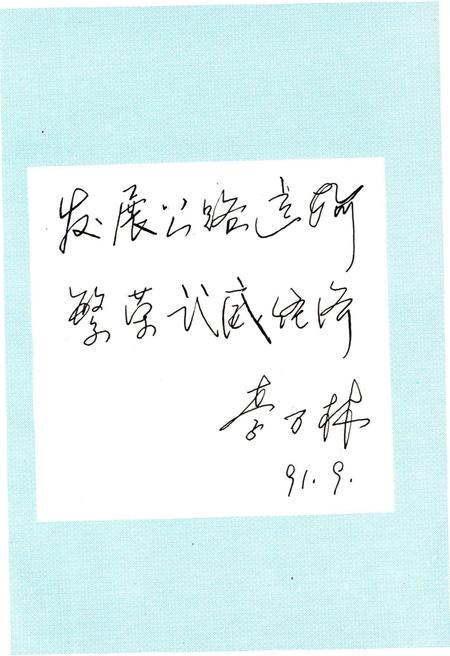 发展公路运输
繁荣武威经济
李万林
91.9.